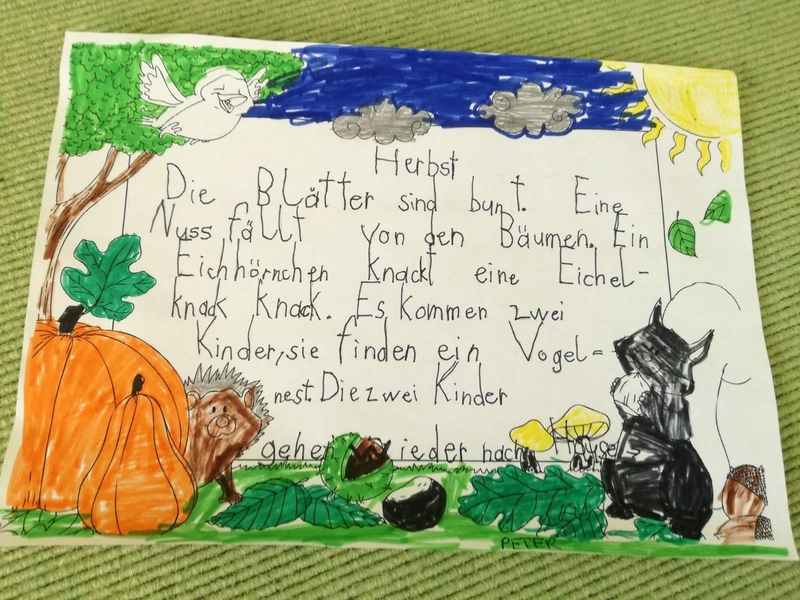 Herbst
Die Blätter sind bunt. Eine
Nuss fällt von den Bäumen. Ein
Eichhörnchen knackt eine Eichel-
knack knack. Es kommen zwei
Kinder, sie finden ein Vogel=
nest. Die zwei Kinder
gehen wieder nach Hause
PETER